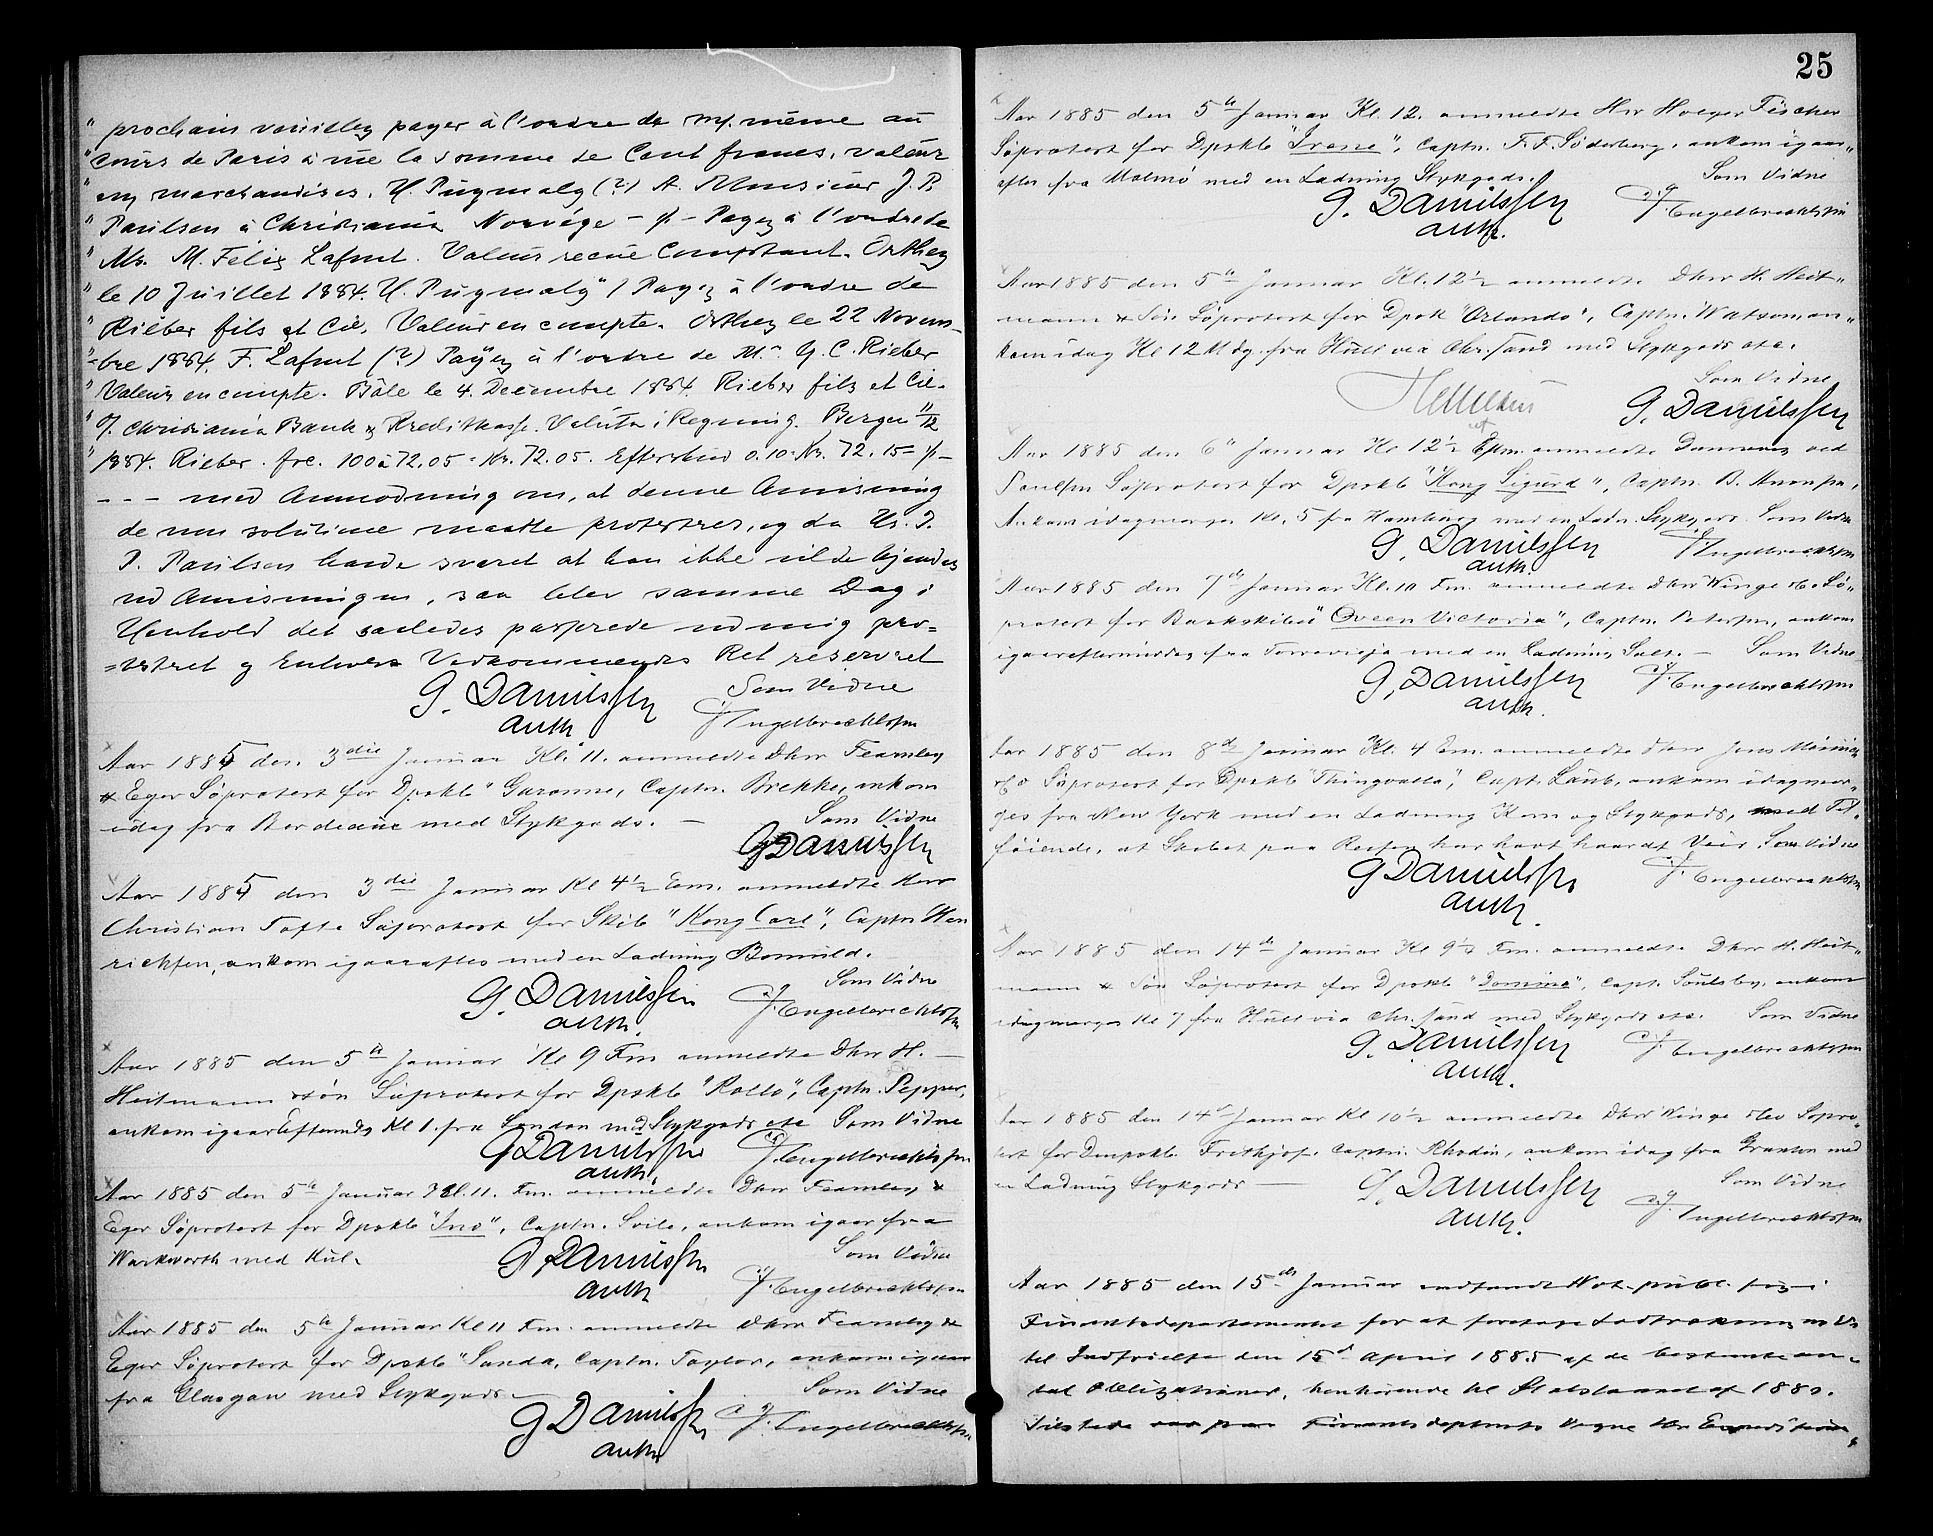 " prochain veuillez payer à l'ordre de mf. même au
" cours de Paris à vue la somme de Cent francs, valeur
" en marchandises. H. Pugmaly (?) A. Monsieur J. P.
" Paulsen à Christiania Norvége — p — Payez à l'ordre de
" Mr. M. Félix Lafont. Valeur recue Comptant. Orthez
" le 10 Juillet 1884. H. Pugmaly" / Payez à l'ordre de
" Rieber fils et Cie. Valeur en compte. Orthez le 22 Novem-
"-bre 1884. F. Lafont (?) Payez à l'ordre de Mr. G. C. Rieber
" Valeur en compte. Bâle le 4. Decembre 1884. Rieber fils et Cie.
" O/. Christiania Bank & Kreditkasse. Valuta i Regning. Bergen 11/12
" 1884. Rieber. frc. 100 à 72.05 = Kr. 72.05. Efterskud 0.10 = Kr. 72.15 = p —
- - - med Anmodning om, at denne Anvisning
de non solutione maatte protestres, og da Hr. J.
P. Paulsen havde svaret at han ikke vilde kjendes
ved Anvisningen, saa blev samme Dag i
Henhold det saaledes passerede ved mig pro=
=testret og Enhvers Vedkommendes Ret reserveret
G. Danielssen Som Vidne
auth. C. J. Engelbrechtssen
Aar 1885 den 3die Januar Kl. 11. anmeldte Dhrr Fearnley
& Eger Söprotest for Dpskb "Garonne, Captn. Brekke, ankom
idag fra Bordeaux med Stykgods. — Som Vidne
G Danielssen
Aar 1885 den 3die Januar Kl 4½ Em. anmeldte Herr
Christian Tofte Söprotest for Skib "Kong Carl", Captn Hen
richsen, ankom igaaraftes med en Ladning Bomuld.
G. Danielssen Som Vidne
auth. C. J. Engelbrechtssen
Aar 1885 den 5te Januar Kl 9 Fm anmeldte Dhrr H. —
Heitmann & Sön Söprotest for Dpskb "Rollo", Captn. Pepper,
ankom igaar Eftermdg Kl 1. fra London med Stykgods etc Som Vidne
G Danielssen C. J. Engelbrechtssen
auth.
Aar 1885 den 5te Januar Kl. 11. Fm. anmeldte Dhrr Fearnley &
Eger Söprotest for Dpskb "Ino", Captn. , ankom igaar fra
Warkworth med Kul. Som Vidne
G Danielssen
auth C. J. Engelbrechtssen
Aar 1885 den 5te Januar Kl 11 Fm. anmeldte Dhrr Fearnley &
Eger Söprotest for Dpskb "Sanda, Captn. Taylor, ankom igaar
fra Glasgow med Stykgods — Som Vidne
G Danielssen C. J. Engelbrechtssen
auth
25
Aar 1885 den 5te Januar Kl. 12. anmeldte Hrr Holger Fischer
Söprotest for Dpskb "Irene", Captn. F. F. Söderberg, ankom igaar"
aftes fra Malmö med en Ladning Stykgods. Som Vidne
G. Danielssen C. J. Engelbrechtssen
auth.
Aar 1885 den 5te Januar Kl. 12½ anmeldte Dhrr H. Heit-
mann & Sön Söprotest for Dpsk "Orlando", Captn. Watsom an"
kom idag Kl 12 Mdg. fra Hull via Chr.sand med Stykgods etc.
Som Vidne
G. Danielssen
Aar 1885 den 6te Januar Kl 12½ Epm. anmeldte ved
Poulsen Söprotest for Dpskb "Kong Sigurd", Captn. B. ,
Ankom idagmorges Kl. 5 fra Hamburg med en Ladn. Stykgods. Som Vidne
G. Danielssen C. J. Engelbrechtssen
auth
Aar 1885 den 7de Januar Kl. 10 Fm. anmeldte Dhrr Winge & Co. Sö-
protest for Barkskibet "Qveen Victoria", Captn. Petersen, ankom
igaareftermiddag fra Torrevieja med en Ladning Salt. — Som Vidne
G, Danielssen C. J. Engelbrechtssen
auth.
Aar 1885 den 8de Januar Kl. 4 Em. anmeldte Dhrr Jens
& Co Söprotest for Dpskb "Thingvalla", Capt. Laub, ankom idagmor-
ges fra New York med en Ladning Korn og Stykgods, med Til-
föiende, at Skibet paa Reisen har havt haardt Veir. Som Vidne
G Danielssen C. J. Engelbrechtssen
auth.
Aar 1885 den 14de Januar Kl 9½ Fm. anmeldte Dhrr H. Heit-
mann & Sön Söprotest for Dpskb "Domino", Capt. Soulsby, ankom
idagmorges Kl 7 fra Hull via Chr.sand med Stykgods etc. Som Vidne
G. Danielssen C. J. Engelbrechtssen
auth.
Aar 1885 den 14de Januar Kl 10½ anmeldte Dhrr Winge & Co Söpro-
test for Dampskb. Frithjof. Captn. Rhodin, ankom idag fra Granton med
en Ladning Stykgods — Som Vidne
G. Danielssen C. J. Engelbrechtssen
auth.
Aar 1885 den 15de Januar indfandt Not. publ. sig i
Finantsdepartementet for at foretage Lodtrækning
til Indfrielse den 15de April 1885 af de bestemte an-
tal Obligationer, henhörende til Statslaanet af 1880.
Tilstede var paa Finantsdeptmts Vegne Hr Expeditions